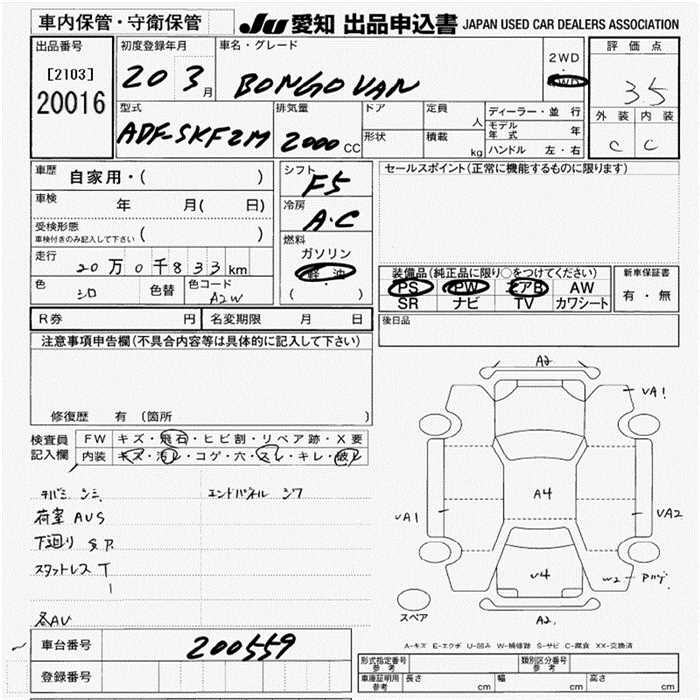 車内保管・守衛保管
JU 愛知 出品申込書 JAPAN USED CAR DEALERS ASSOCIATION
出品番号
[2103]
20016
初度登録年月
20 3 月
車名・グレード
BONGO VAN
2WD
・
4WD
評価点
3.5
外装 内装
C C
型式
ADF-SKF2M
排気量
2000 CC
ドア
定員
人
形状
積載
kg
ディーラー・並行
モデル年式 年
ハンドル 左・右
車歴 自家用・( )
車検 年 月( 日)
受検形態
車検付きのみ記入して下さい ( )
走行
20万0千833km
色 シロ 色替 色コード A2W
シフト
F5
冷房
A・C
燃料
ガソリン
軽油
( ・ )
セールスポイント(正常に機能するものに限ります)
装備品(純正品に限り○をつけてください)
PS PW エアB AW
SR ナビ TV カワシート
新車保証書
有・無
R券 円 名変期限 月 日
後日品
注意事項申告欄(不具合内容等は具体的に記入して下さい)
修復歴 有 (箇所 )
検査員記入欄
FW キズ・飛石・ヒビ割・リペア跡・X要
内装 キズ・汚レ・コゲ・穴・スレ・キレ・破レ
エンドパネル シワ
荷室 AUS
下廻り S.P.
スタットレス T
1
各AU
A2
VA1
A4
VA1
VA2
W2
U4
スペア
A2
A-キズ E-エクボ U-凹み W-補修跡 S-サビ C-腐食 XX-交換済
車台番号 200559
登録番号
形式指定番号
参考
類別区分番号
参考
車庫証明用
参考
長さ cm 幅 cm 高さ cm